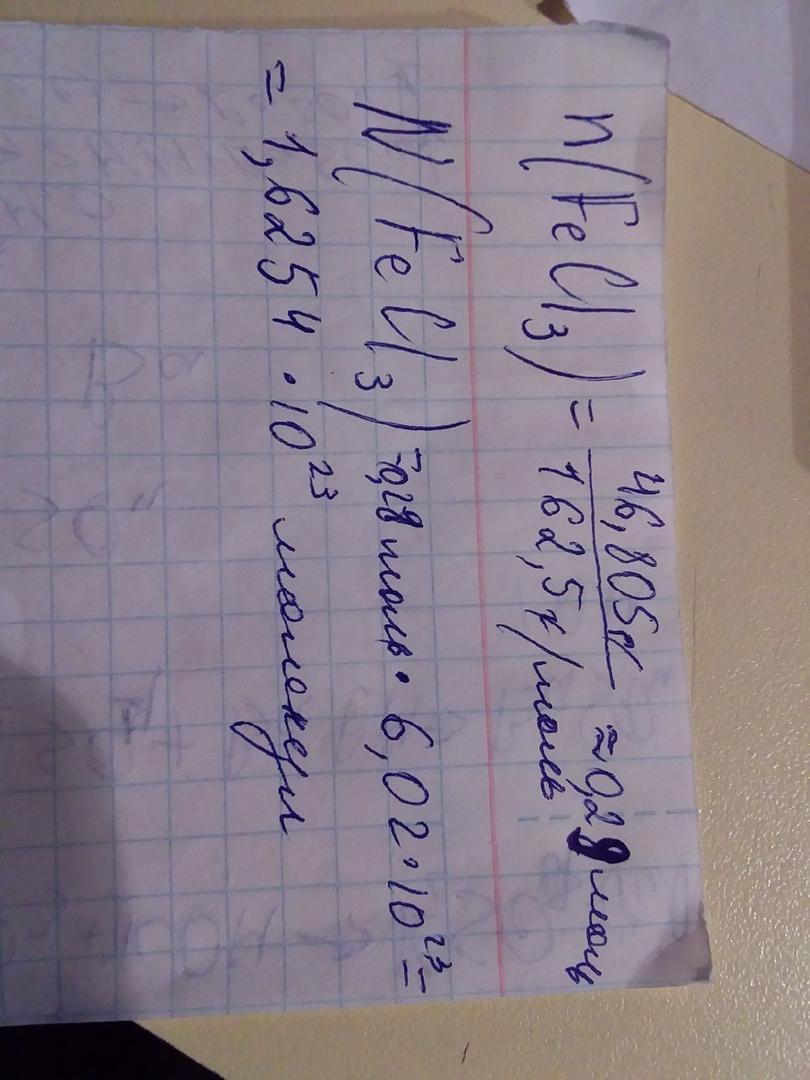 n(FeCl₃) = 46,805г / 162,5г/моль ≈ 0,29 моль
N(FeCl₃) = 0,28 моль · 6,02 · 10²³ =
= 1,6254 · 10²³ молекул